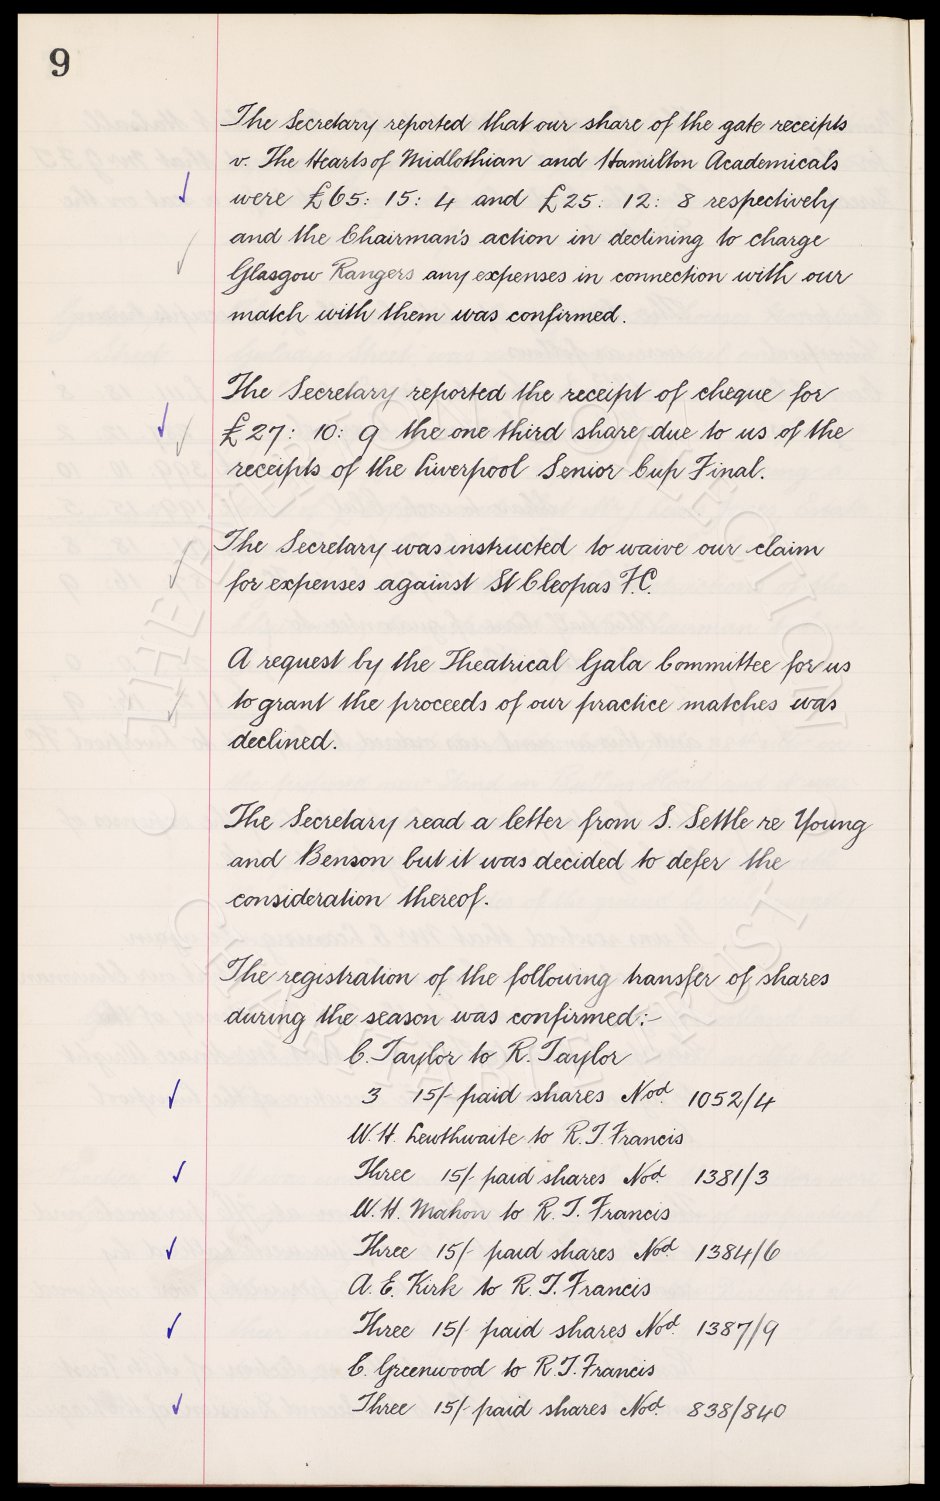 9
The Secretary reported that our share of the gate receipts
v. The Hearts of Midlothian and Hamilton Academicals
were £65: 15: 4 and £25: 12: 8 respectively
and the Chairman's action in declining to charge
Glasgow Rangers any expenses in connection with our
match with them was confirmed.
The Secretary reported the receipt of cheque for
£27: 10: 9 the one third share due to us of the
receipts of the Liverpool Senior Cup Final.
The Secretary was instructed to waive our claim
for expenses against St Cleopas F.C.
A request by the Theatrical Gala Committee for us
to grant the proceeds of our practice matches was
declined.
The Secretary read a letter from S. Settle re Young
and Benson but it was decided to defer the
consideration thereof.
The registration of the following transfer of shares
during the season was confirmed:-
C. Taylor to R. Taylor
3 15/- paid shares Nod. 1052/4
W.H. Lewthwaite to R.T. Francis
Three 15/- paid shares Nod 1381/3
W.H. Mahon to R.T. Francis
Three 15/- paid shares Nod. 1384/6
A.E. Kirk to R.T. Francis
Three 15/- paid shares Nod. 1387/9
C. Greenwood to R.T. Francis
Three 15/- paid shares Nod. 838/840
THE EVERTON COLLECTION
CHARITABLE TRUST